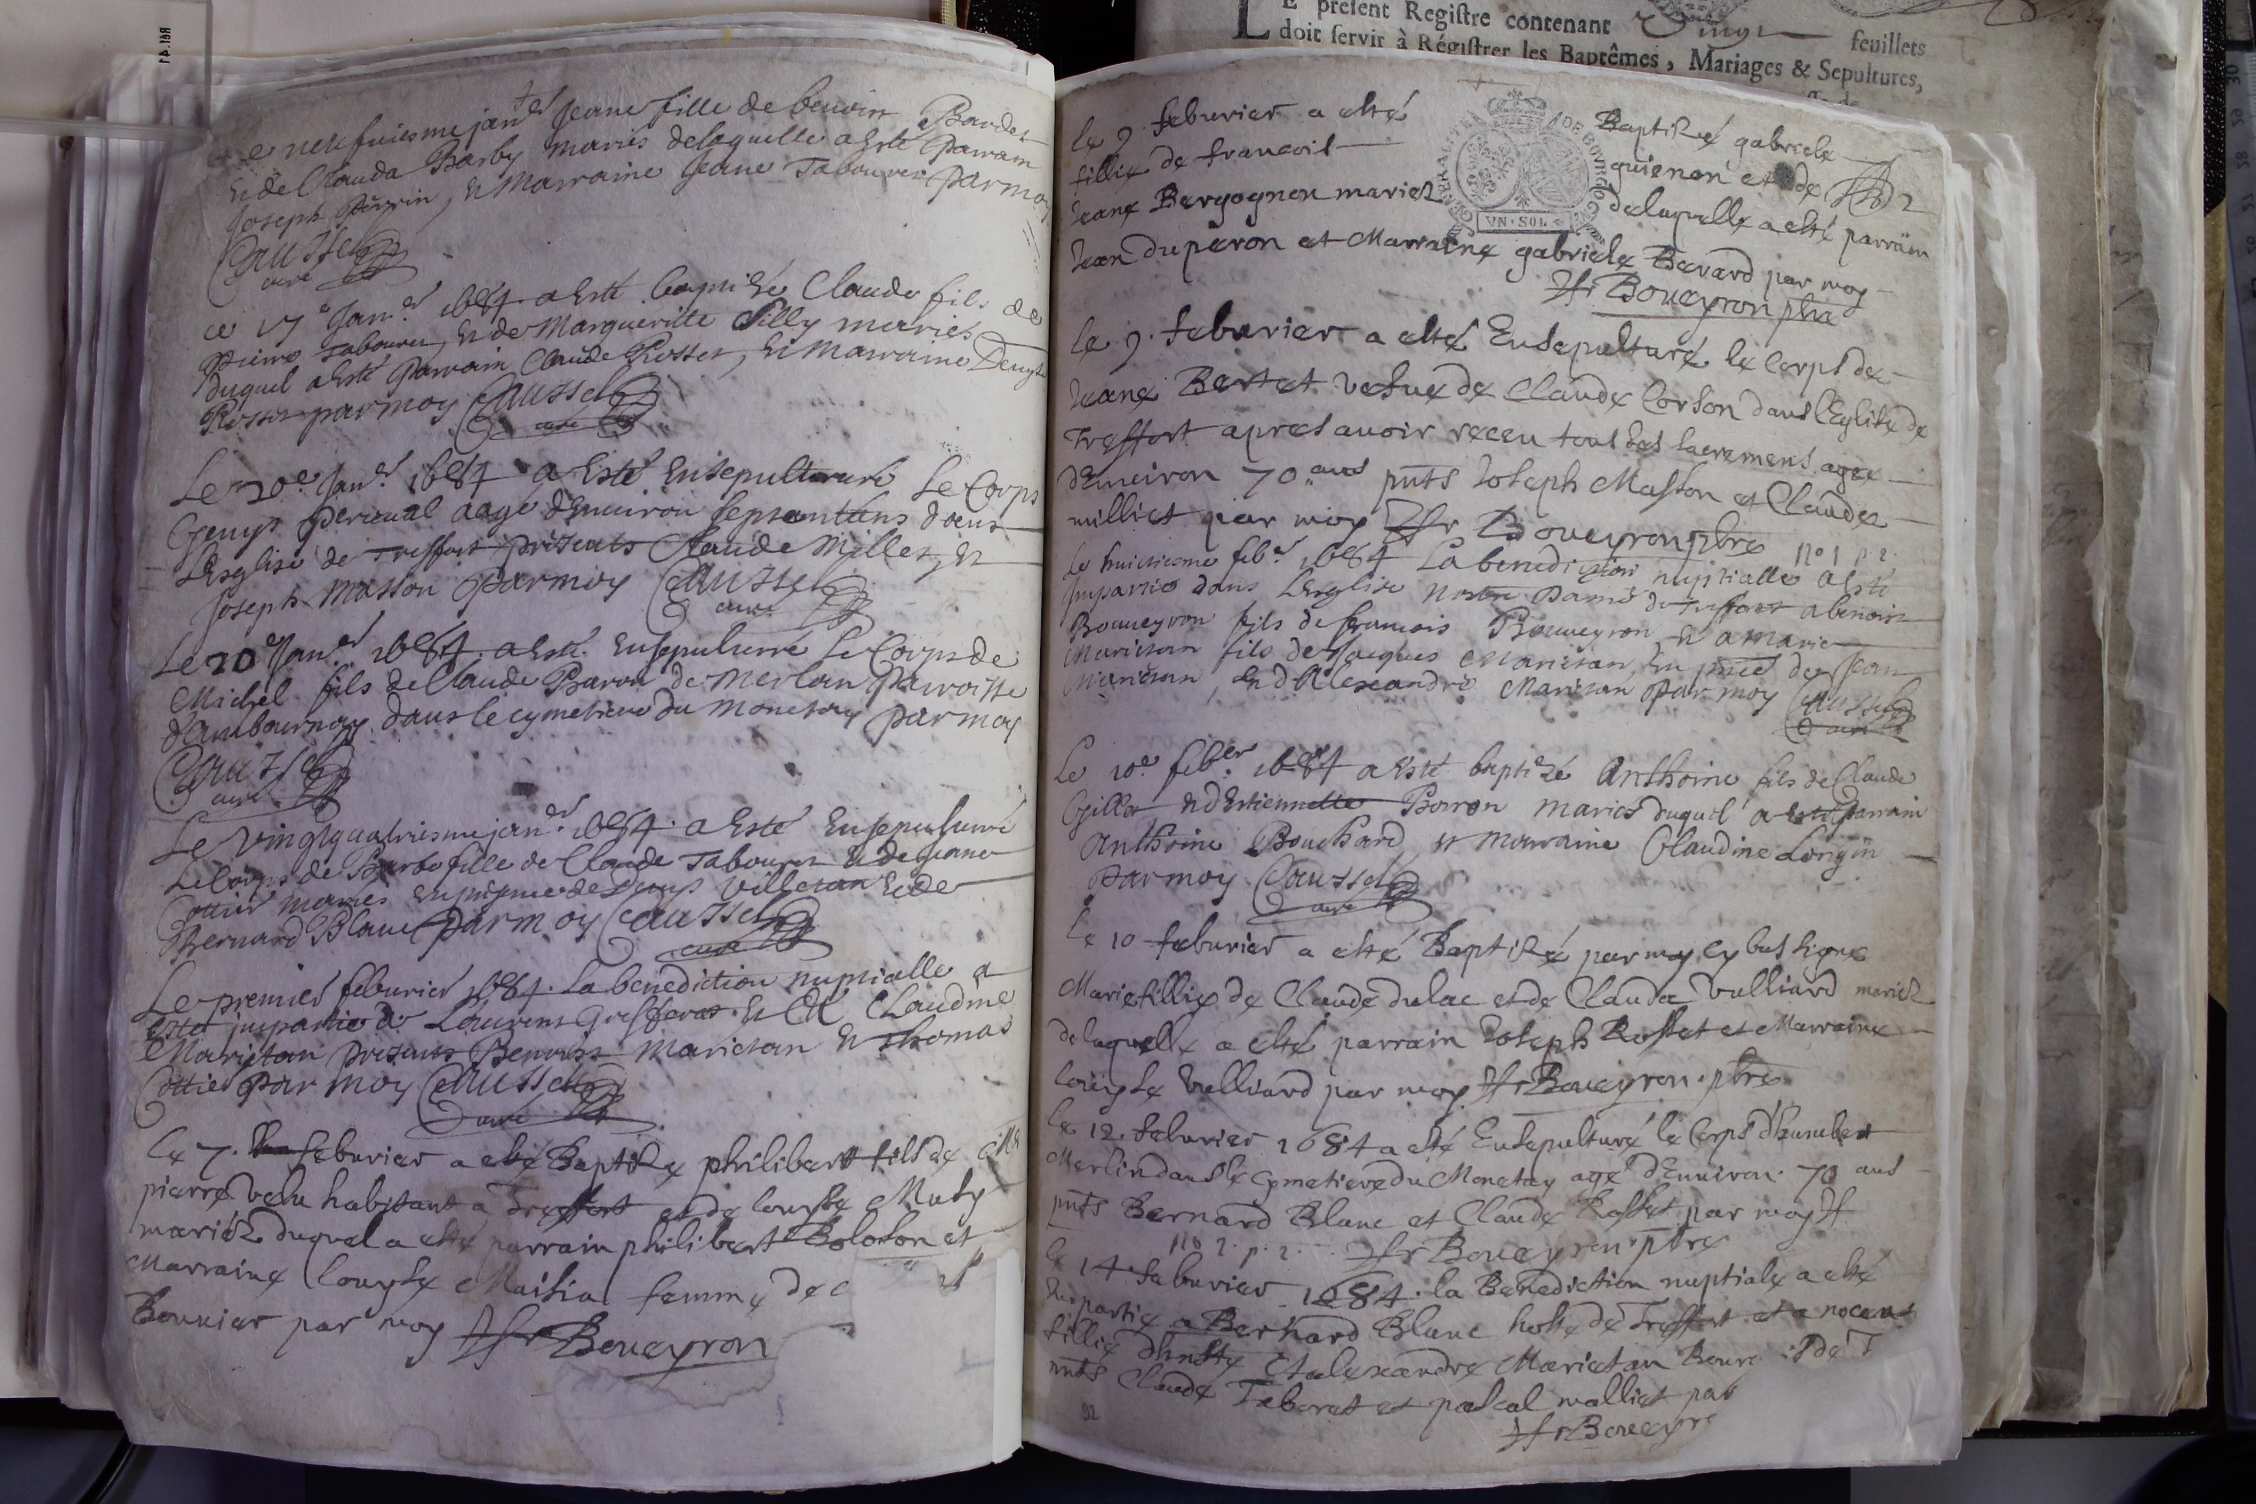 Jeane fille de benoist Bardet
Et de Clauda Barby mariés de laquelle a Esté Parrain
Joseph Perrin, Et Marraine Jeane Tabouret par moy
Caussel
curé
ce 17e Janer 1684 a Esté baptizé Claude fils de
Pierre Tabouret, Et de Margueritte Silly mariés
duquel a Esté Parrain Claude Rosset, Et Marraine Denyse
Rosset par moy Caussel
curé
Le 20e Janer 1684 a Esté Ensepulturé Le Corps
Denys Perceval aagé d'Environ septante ans dans
L'Esglise de Treffort présents Claude Millet, Et
Joseph Masson par moy Caussel
curé
Le 20e Janer 1684 a Esté Ensepulturé Le Corps de
Michel fils de Claude Baron de Merlan Parroisse
d'Ambournay dans le cymetiere du Monetay par moy
Caussel
curé
Le vingtquatriesme janer 1684 a Esté Ensepulturé
Le Corps de fille de Claude Tabouret Et de Jeane
Cottier mariés En présence de Denys Villetan Et de
Bernard Blanc par moy Caussel
curé
Le premier feburier 1684 La benediction nuptialle a
Estée impartie à Laurens Et à Claudine
Marietan présents Benoist Marietan Et Thomas
Cottier par moy Caussel
curé
le 7. feburier a esté Baptizé philibert fils de
pierre velu habitant a Treffort et de louyse Muty
mariéz duquel a esté parrain philibert Boloson et
Marraine louyse Maisia femme de
Bonnier par moy Boueyron
E present Registre contenant vingt feuillets
doit servir à Régistrer les Baptêmes, Mariages & Sepultures,
le 9. feburier a esté Baptizé gabriele
fillie de francois guienon et de
Jeane Bergognon mariéz delaquelle a esté parrain
GENERALITE DE BOVRGOGNE
VN·SOL
Jean duperon et Marraine gabriele Bevard par moy
Boueyron pbre
le 9. feburier a esté Ensepulturé le corps de
Jeane Bertet vefue de Claude Corson dans l'Eglise de
Treffort apres auoir receu tous les sacremens agée
d'Enuiron 70 ans pnts Joseph Masson et Claude
milliet par moy Boueyron pbre
Le huictiesme feber 1684 La benediction nuptialle a Esté
Impartie dans L'Esglise Nostre Dame de Treffort a benoist
Boueyron fils de francois Boueyron, Et a Marie
Marietan fille de Jacques Marietan, En pnce de Jean
Marietan, Et d'Alexandre Marietan par moy Caussel
curé
Le 10e feber 1684 a Esté baptizé Anthoine fils de Claude
Gillet Et d'Estiennette Borron mariés duquel a Esté parrain
Anthoine Bouchard, Et marraine Claudine Longin
par moy Caussel
curé
le 10 feburier a esté Baptizé par moy cy bas signé
Marie fillie de Claude dulac et de Clauda vulliard mariéz
delaquelle a esté parrain Joseph Rosset et Marraine
louyse vulliard par moy Boueyron pbre
le 12. feburier 1684 a esté Ensepulturé le Corps d'humbert
Merlin dans le Cymetiere du Monetay agé d'Enuiron 70 ans
pnts Bernard Blanc et Claude Rosset par moy
Boueyron pbre
le 14. feburier 1684. la Benediction nuptiale a esté
Impartie a Bernard Blanc hoste de Treffort et a
fillie d'hoste Alexandre Marietan
pnts Claude Taboret et pascal malliet par
Boueyr
92